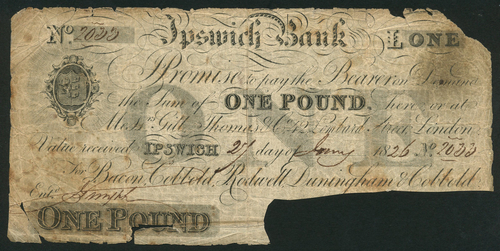 No. 2033 Ipswich Bank £ ONE
Promise to pay the Bearer on Demand
the Sum of ONE POUND, here or at
Messrs. Gill Thomas & Co. 42 Lombard Street London
Value received IPSWICH 27 day of Jany 1826 No. 2033
For Bacon, Cobbold, Rodwell, Dunningham & Cobbold
Entd.
ONE POUND